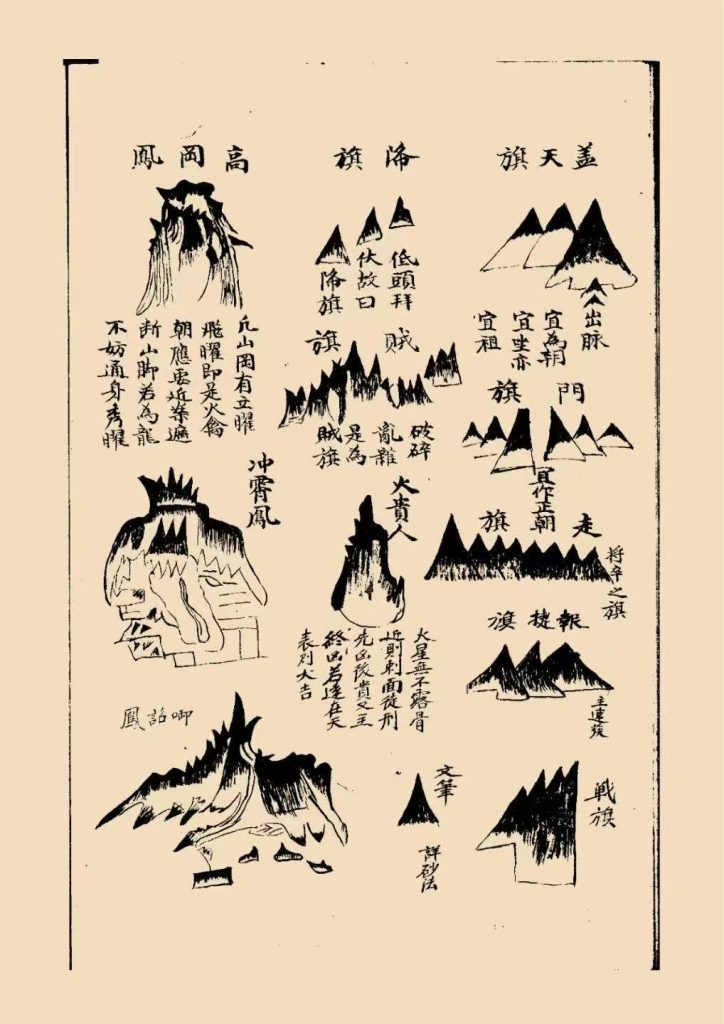 盖天旗
出脉
宜為朝
宜坐亦
宜祖
門旗
宜作正朝
走旗
将卒之旗
報捷旗
主連發
戰旗
降旗
低頭拜
伏故曰
降旗
賊旗
破碎
亂雜
是為
賊旗
火貴人
火星無不露骨
近則刺面徒刑
先凶後貴又主
終凶若遠在天
表列大吉
文筆
詳砂法
高岡鳳
凡山岡有立曜
飛曜即是火禽
朝應要近案遍
断山脚若為龍
不妨通身秀曜
冲霄鳳
啣詔鳳